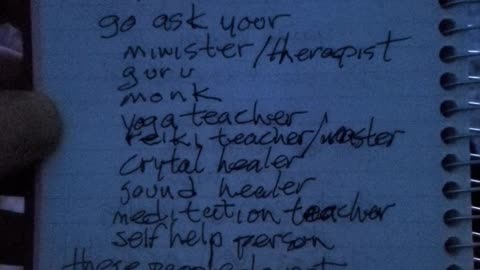 go ask your
minister/therapist
guru
monk
yoga teacher
reiki teacher/master
crytal healer
sound healer
meditation teacher
self help person
these people do not